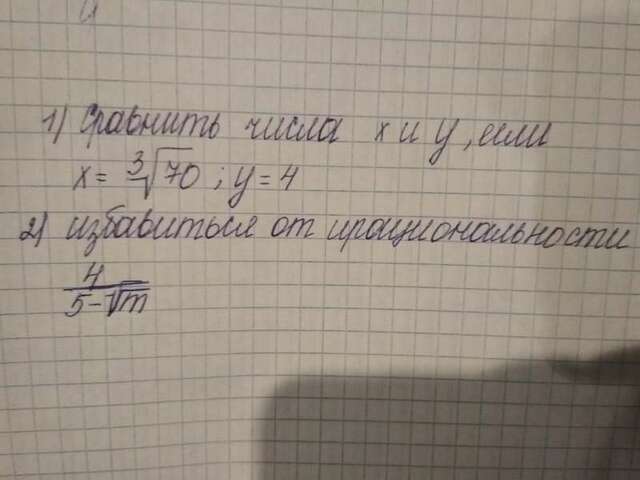 1) Сравнить числа x и y, если
x = ∛70 ; y = 4
2) избавиться от ирациональности
4/(5-√m)